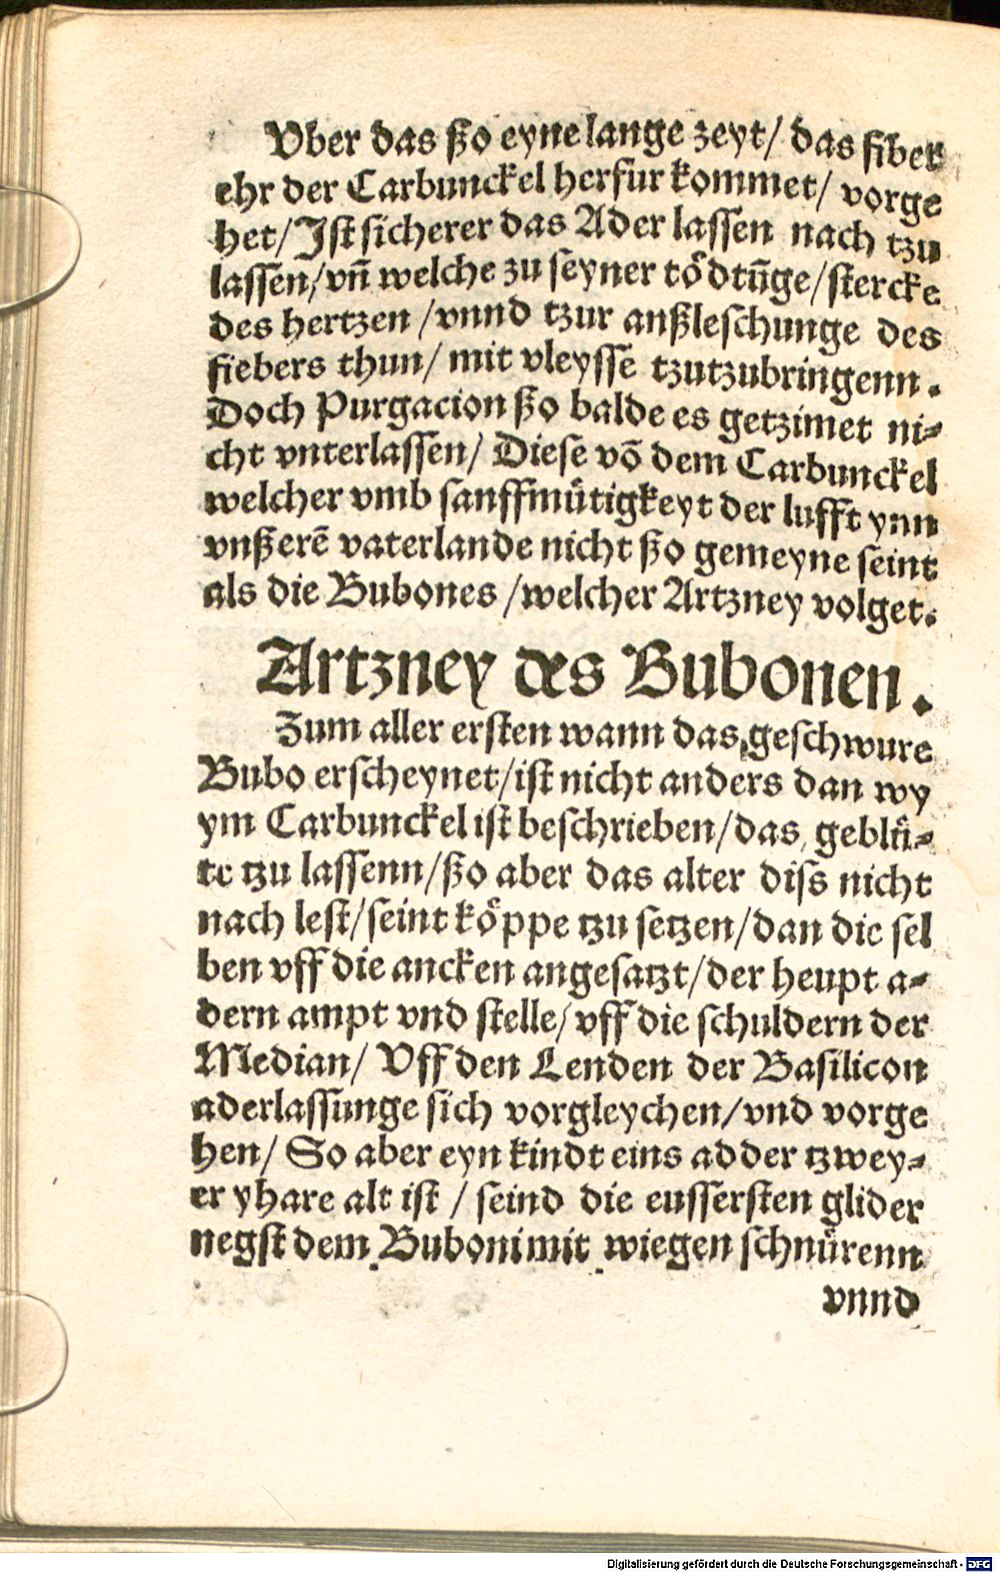 Vber das ßo eyne lange zeyt/ das fiber
ehr der Carbunckel herfur kommet/ vorge
het/ Jst sicherer das Ader lassen nach tzu
lassen/ vñ welche zu seyner tödtũge/ stercke
des hertzen /vnnd tzur anßleschunge des
fiebers thun/ mit vleysse tzutzubringenn.
Doch Purgacion ßo balde es getzimet ni⸗
cht vnterlassen/ Diese võ dem Carbunckel
welcher vmb sanffmütigkeyt der lufft ynn
vnßerẽ vaterlande nicht ßo gemeyne seint
als die Bubones /welcher Artzney volget.
Artzney des Bubonen.
Zum aller ersten wann das geschwure
Bubo erscheynet/ ist nicht anders dan wy
ym Carbunckel ist beschrieben/ das geblü⸗
te tzu lassenn/ ßo aber das alter diss nicht
nach lest/ seint köppe tzu setzen/ dan die sel
ben vff die ancken angesatzt/ der heupt a⸗
dern ampt vnd stelle/ vff die schuldern der
Median/ Vff den Lenden der Basilicon
aderlassunge sich vorgleychen/ vnd vorge
hen/ So aber eyn kindt eins adder tzwey⸗
er yhare alt ist / seind die eussersten glider
negst dem Buboni mit wiegen schnürenn
vnnd
Digitalisierung gefördert durch die Deutsche Forschungsgemeinschaft - DFG